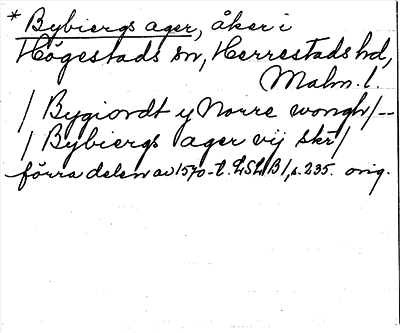 * Bybiergs ager, åker i
Högestads sn, Herrestads hd,
Malm. l.
/ Bygiordt y Norre wongh/--
/ Bybiergs ager vij skr/
förra delen av 1570-t. LSLB1, s. 235. orig.